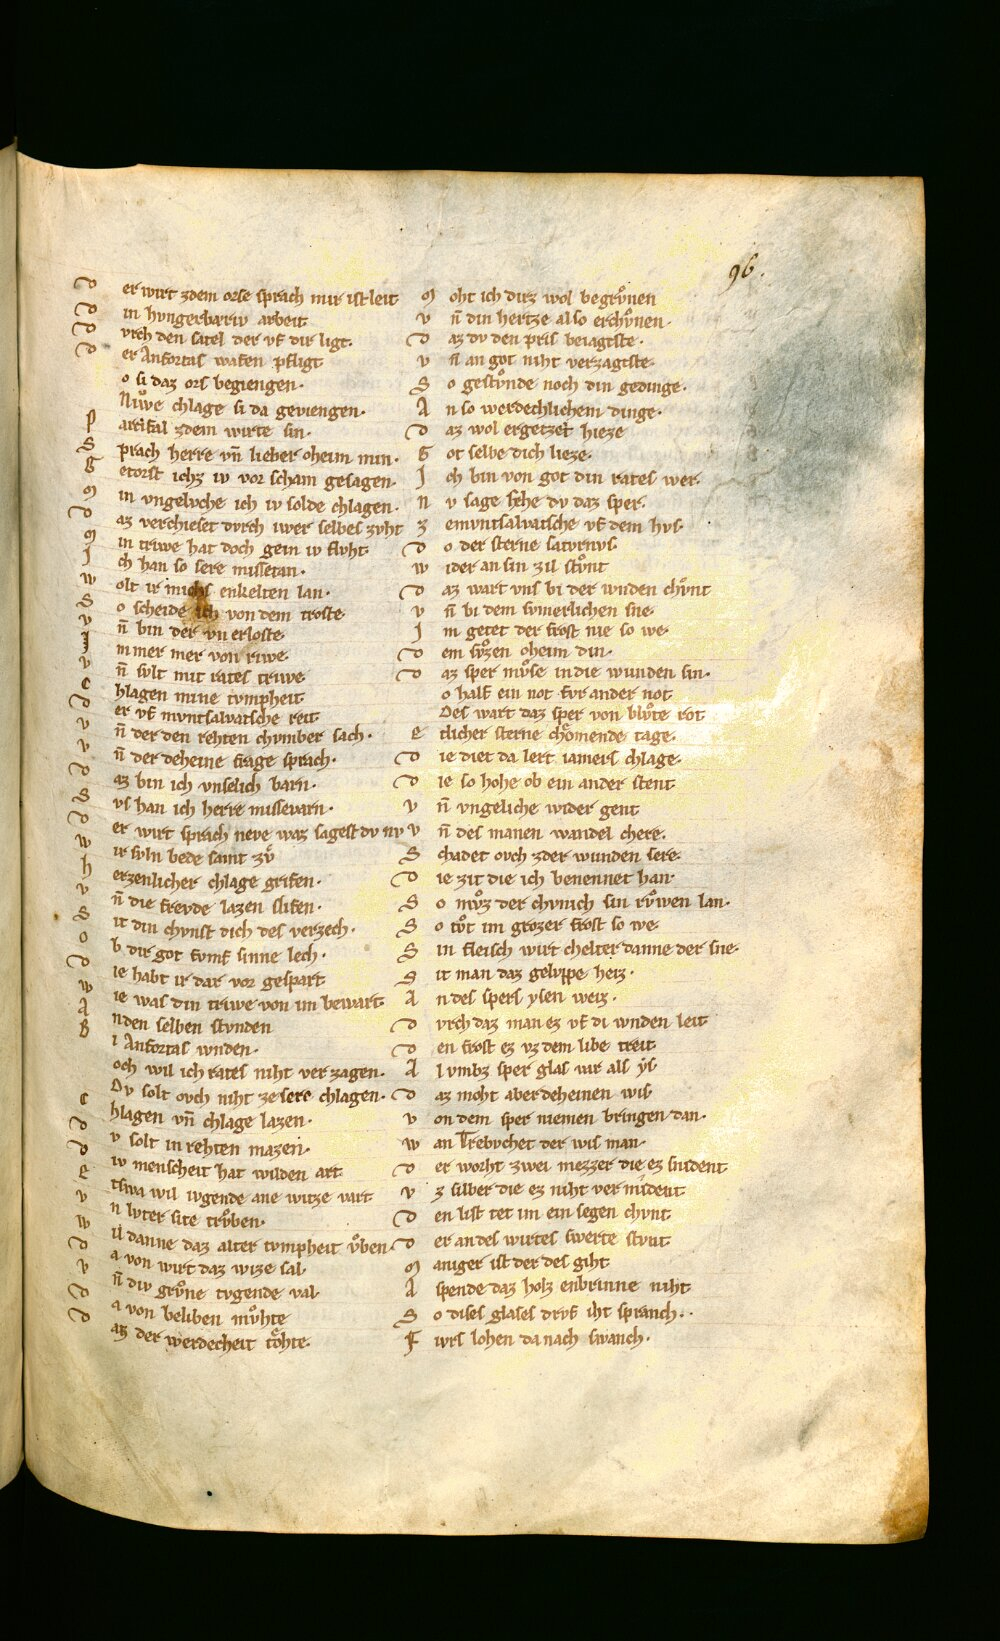 96.
Der wirt zdem orse sprach mir ist leit
Din hvngerbariv arbeit
Dvrch den satel der vf dir ligt.
Der Anfortas wafen pfligt
o si daz ors begiengen.
Niwe chlage si da geviengen.
Parzifal zdem wirte sin.
Sprach herre vn̄ lieber oheim min.
Getorst ichz iv vor scham gesagen.
Min vngelvche ich iv solde chlagen.
Daz verchieset dvrch iwer selbes zvht
Min triwe hat doch gein iv flvht
Ich han so sere missetan.
Wolt ir michs enkelten lan.
So scheide ich von dem troste
Vn̄ bin der vn erloste
Immer mer von riwe.
Vn̄ svlt mit rates triwe
Chlagen mine tvmpheit
Der vf mvntsalvatsche reit
Vn̄ der den rehten chvmber sach.
Vn̄ der deheine frage sprach.
Daz bin ich vnselich barn.
Svs han ich herre missevarn.
Der wirt sprach neve waz sagest dv nv
Wir svln bede samt zv̊
Herzenlicher chlage grifen.
Vn̄ die frevde lazen slifen.
Sit din chvnst dich des verzech.
Ob dir got fvmf sinne lech.
Die habt ir dar vor gespart
Wie was din triwe von im bewart
Anden selben stvnden
Bi Anfortas wnden.
och wil ich rates niht verzagen.
Dv solt ovch niht ze sere chlagen.
Chlagen vn̄ chlage lazen.
Dv solt in rehten mazen.
Div menscheit hat wilden art
Etswa wil ivgende ane witze vart
Vn lvter site trv̊ben.
Wil danne daz alter tvmpheit v̊ben
Da von wirt daz wize sal.
Vn̄ div grv̊ne tvgende val.
Da von beliben mv̊hte
Daz der werdecheit tohte.
Moht ich dirz wol begrv̊nen
Vn̄ din hertze also erchv̊nen.
Daz dv den pris beiagtste.
Vn̄ an got niht verzagtste.
So gestv̊nde noch din gedinge.
An so werdechlichem dinge.
Daz wol ergetzet hieze
Got selbe dich lieze.
Ich bin von got din rates wer.
Nv sage sehe dv daz sper.
Zemvntsalvatsche vf dem hvs.
Do der sterne satvrnvs.
Wider an sin zil stv̊nt
Daz wart vns bi der wnden chv̊nt
Vn̄ bi dem svmerlichen sne.
Im getet der frost nie so we.
Dem sv̊zen oheim din.
Daz sper mv̊se in die wunden sin.
o half ein not fvr ander not
Des wart daz sper von blv̊te rot
Etlicher sterne chomende tage.
Die diet da lert iamers chlage.
Die so hohe ob ein ander stent
Vn̄ vngeliche wider gent
Vn̄ des manen wandel chere.
Schadet ovch zder wunden sere.
Die zit die ich benennet han
So mv̊z der chvnich sin rv̊wen lan.
So tv̊t im grozer frost so we.
Sin fleisch wirt chelter danne der sne.
Sit man daz gelvppe heiz.
An des spers ysen weiz.
Dvrch daz man ez vf di wnden leit
Den frost ez vz dem libe treit
Al vmbz sper glas var als ys
Daz moht aber deheinen wis
Von dem sper niemen bringen dan.
Wan Trebvchet der wis man.
Der worht zwei mezzer die ez snident
Vz silber die ez niht vermident
Den list tet im ein segen chvnt
Der an des wirtes swerte stvnt
Maniger ist der des giht
Aspende daz holz enbrinne niht
So dises glases drvf iht spranch.
Fivrs lohen da nach swanch.